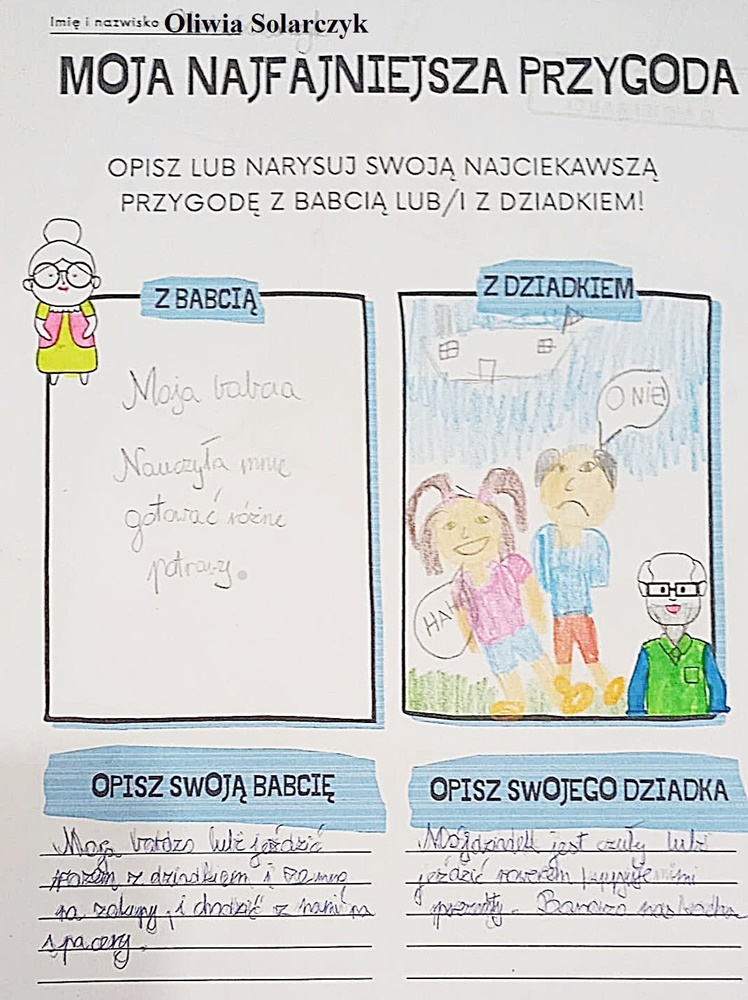 Imię i nazwisko Oliwia Solarczyk
MOJA NAJFAJNIEJSZA PRZYGODA
OPISZ LUB NARYSUJ SWOJĄ NAJCIEKAWSZĄ
PRZYGODĘ Z BABCIĄ LUB/I Z DZIADKIEM!
Z BABCIĄ
Moja babcia
Nauczyła mnie
gotować różne
potrawy.
Z DZIADKIEM
O NIE!
HAHA
OPISZ SWOJĄ BABCIĘ
Moja bardzo lubi jeździć
razem z dziadkiem i ze mną
na zakupy, i chodzić z nami na
spacery.
OPISZ SWOJEGO DZIADKA
Mój dziadek jest czuły lubi
jeździć rowerem kupuje mi
prezenty. Bardzo nas kocha